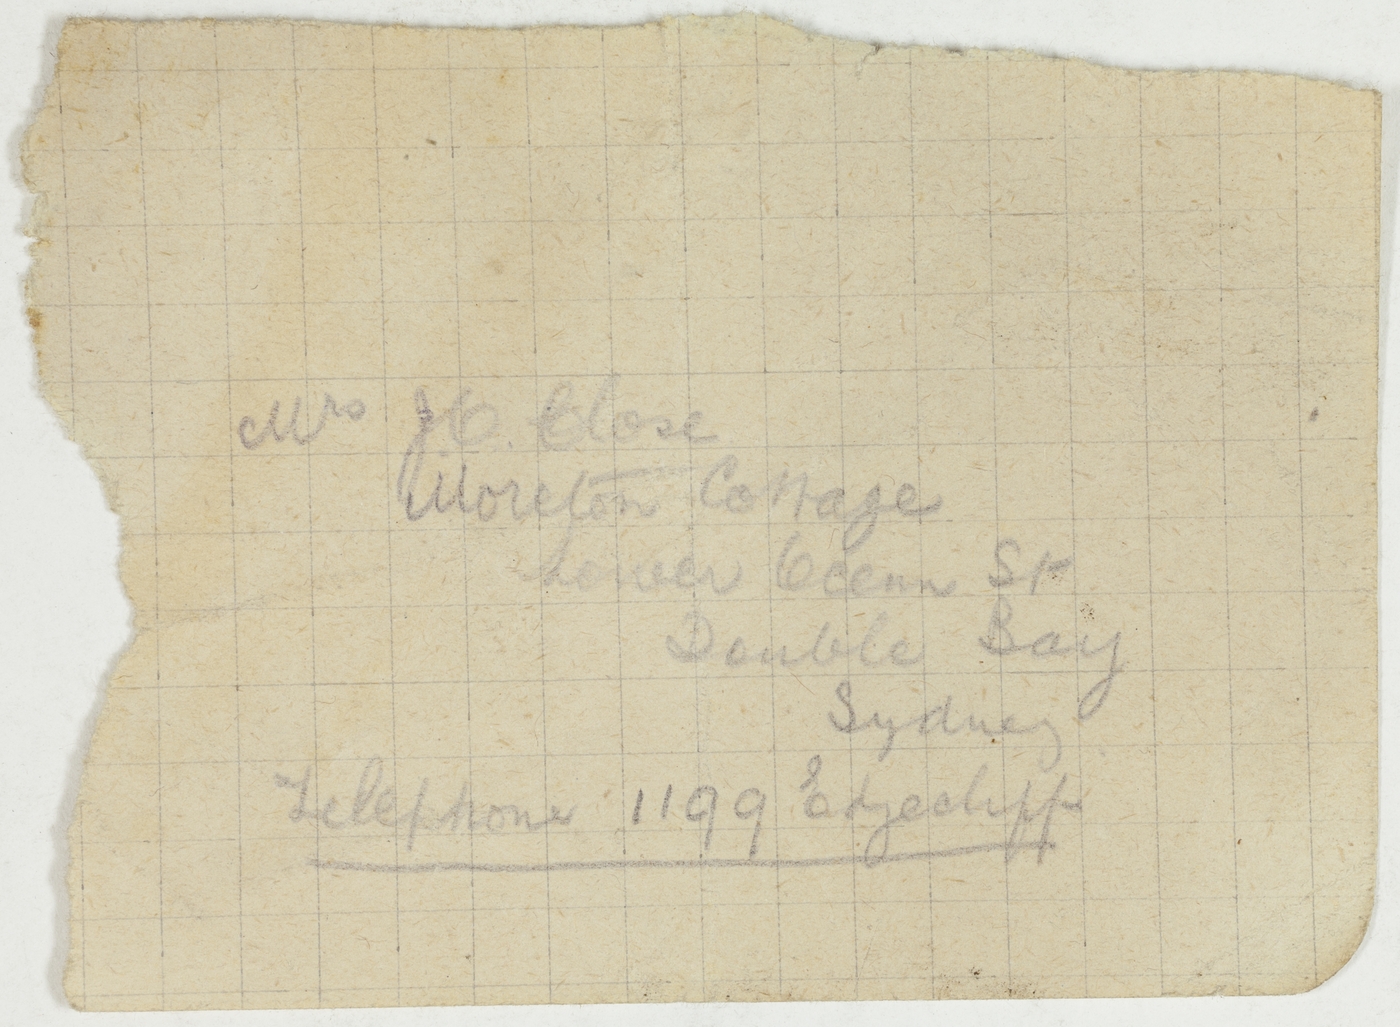 Mrs J C. Close
Moreton Cottage
Lower Ocean St
Double Bay
Sydney
Telephone 1199 Edgecliff